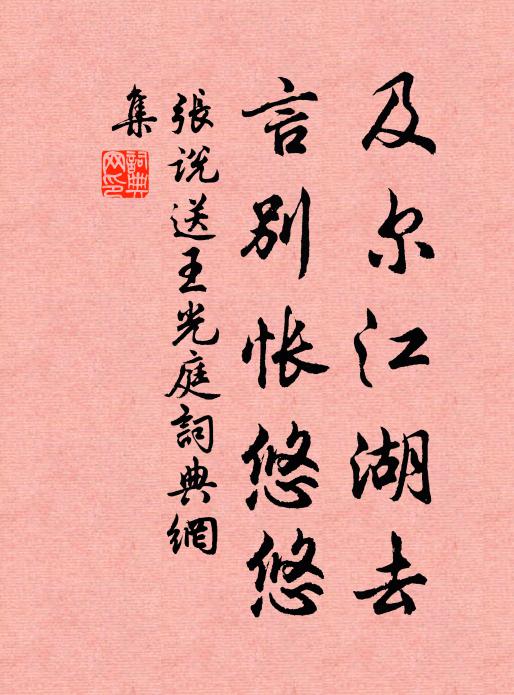 及尔江湖去
言别怅悠悠
張说送王光庭詞典網
集
詞典
网印